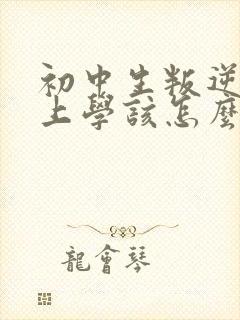 初中生叛逆
上學該怎麼
龍會琴